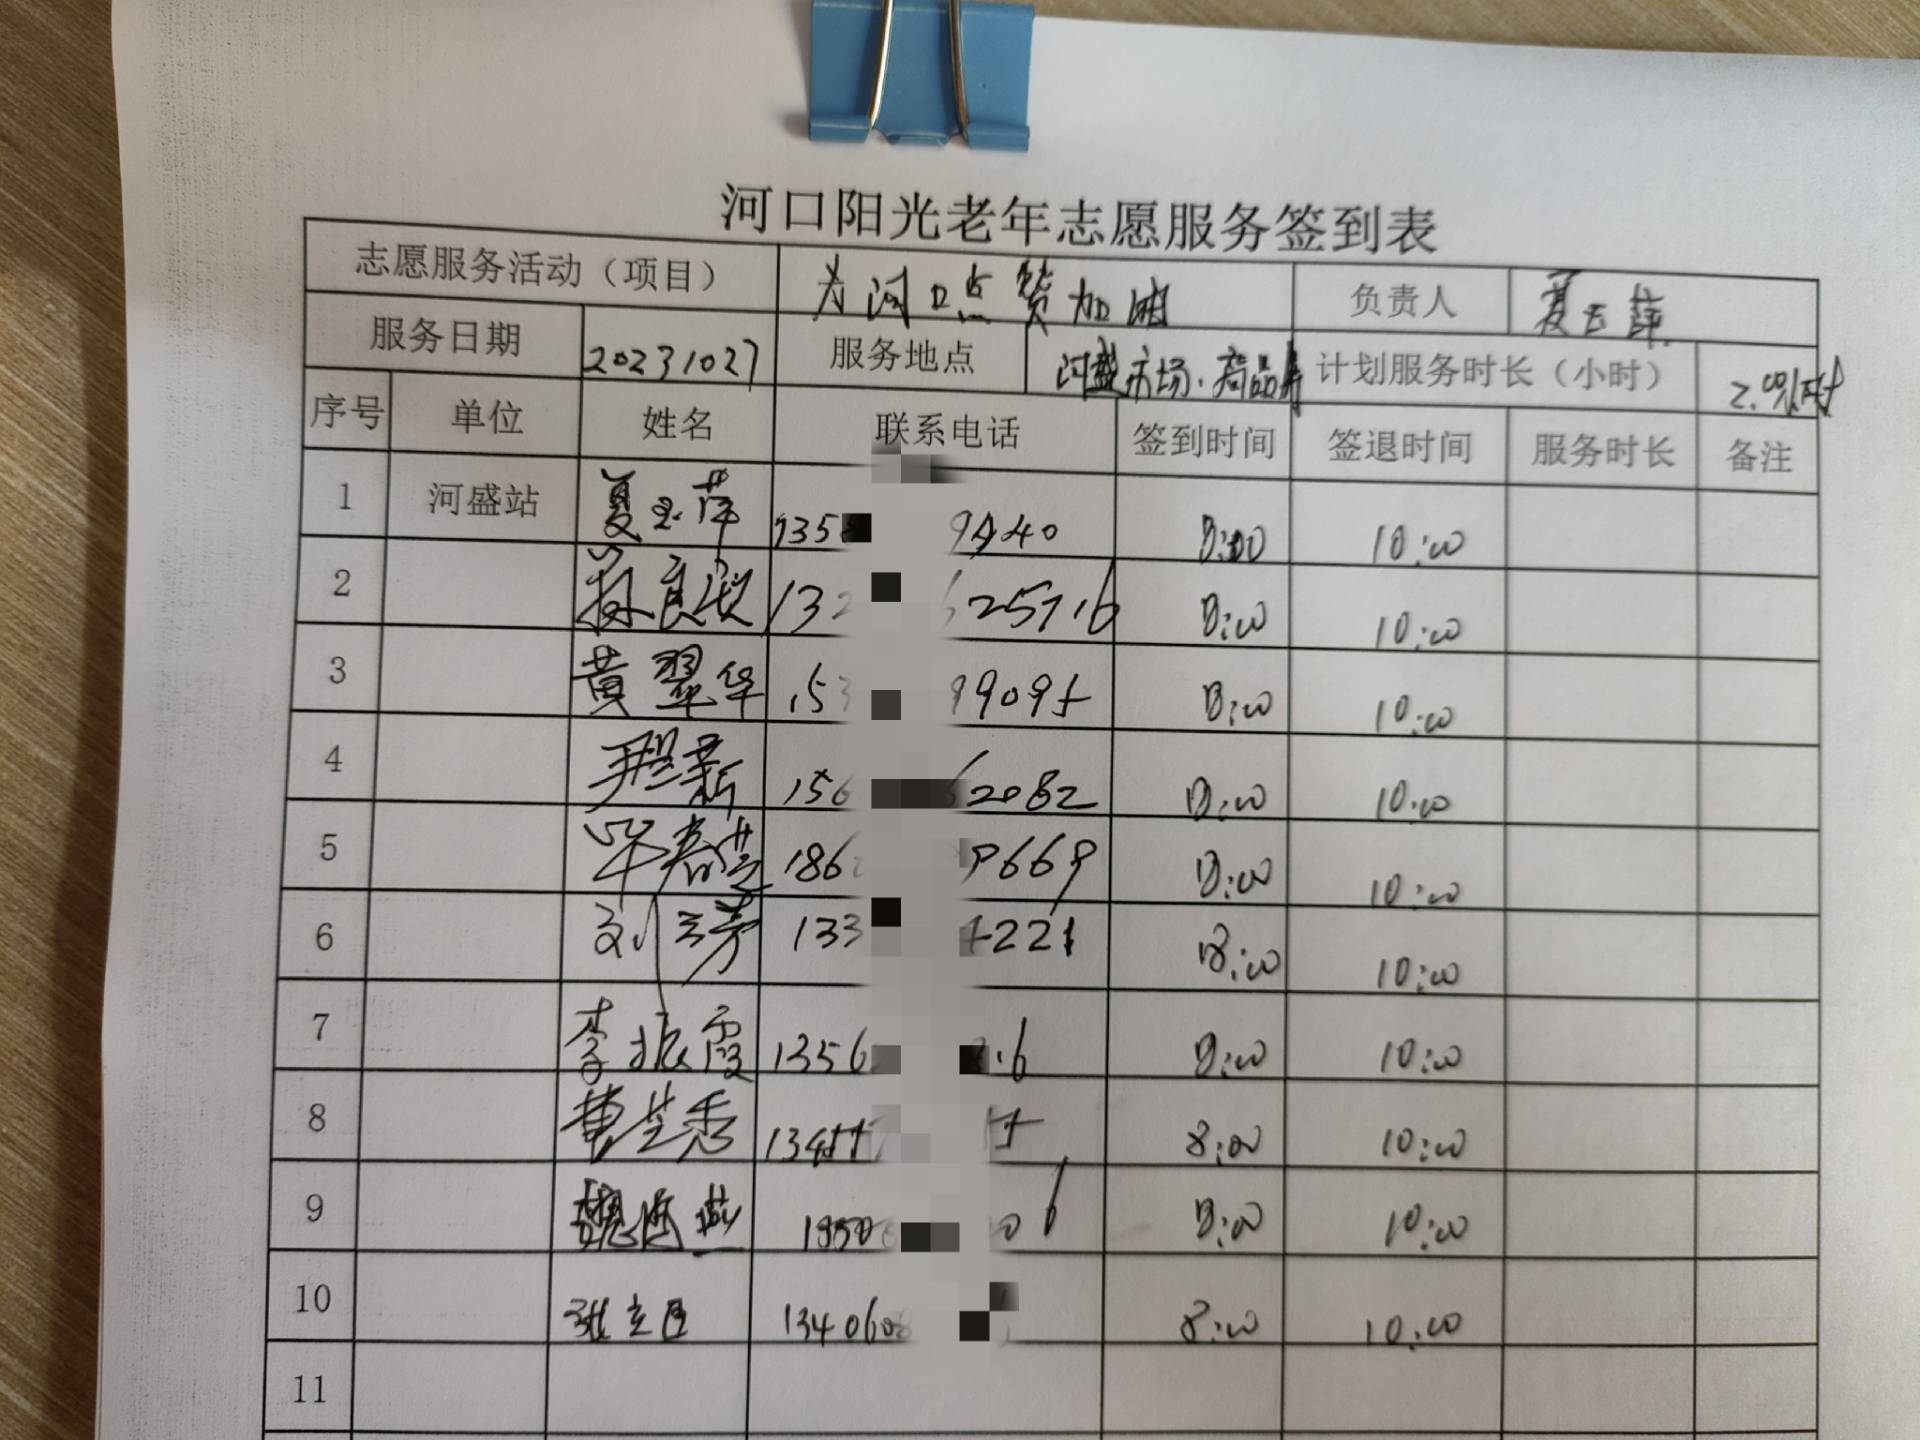 河口阳光老年志愿服务签到表
志愿服务活动（项目） 为河口点赞加油 负责人 夏玉萍
服务日期 20231027 服务地点 河盛市场.商品 计划服务时长（小时） 2.00小时
序号 单位 姓名 联系电话 签到时间 签退时间 服务时长 备注
1 河盛站 夏玉萍 135 9440 8:00 10:00
2 132 625716 8:00 10:00
3 黄翠华 153 99095 8:00 10:00
4 156 62082 8:00 10:00
5 186 9669 8:00 10:00
6 刘兰芳 133 4221 8:00 10:00
7 李振霞 1356 6 8:00 10:00
8 黄芝秀 134 8:00 10:00
9 魏 8:00 10:00
10 张立 13406 8:00 10:00
11